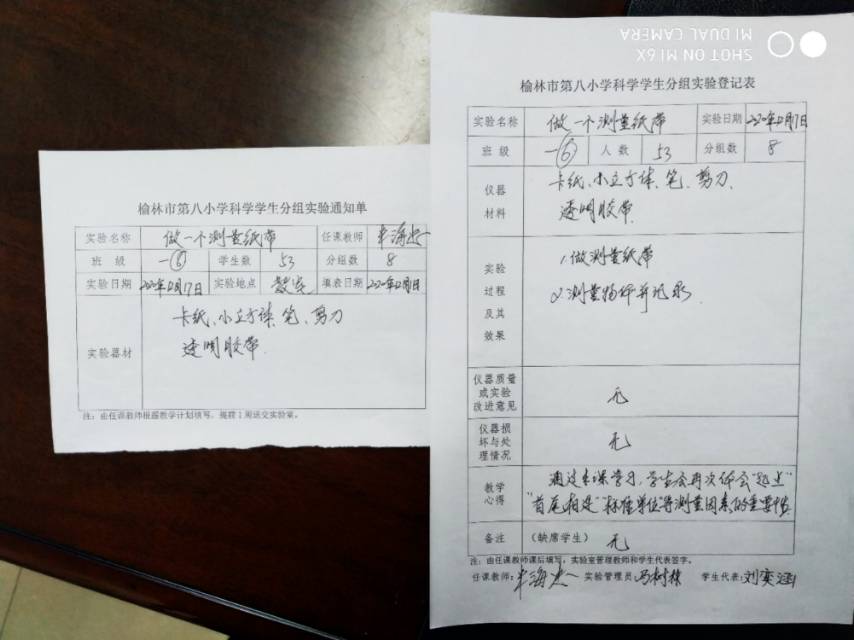 SHOT ON MI 6X
MI DUAL CAMERA
榆林市第八小学科学学生分组实验通知单
实验名称 做一个测量纸带 任课教师
班 级 一(6) 学生数 53 分组数 8
实验日期 2020年12月17日 实验地点 教室 填表日期
实验器材 卡纸、小立方体、笔、剪刀
透明胶带
注：由任课教师根据教学计划填写，提前1周送交实验室。
榆林市第八小学科学学生分组实验登记表
实验名称 做一个测量纸带 实验日期 2020年12月17日
班 级 一(6) 人 数 53 分组数 8
仪器 卡纸、小立方体、笔、剪刀、
材料 透明胶带
实验 1.做测量纸带
过程 2.测量物体并记录
及其
效果
仪器质量
或实验 无
改进意见
仪器损
坏与处 无
理情况
教学 通过本课学习，学生会再次体会"起点"
心得 "首尾相连"标准单位"等测量因素的重要性
备注 (缺席学生) 无
注：由任课教师课后填写，实验室管理教师和学生代表签字。
任课教师： 实验管理员：马树林 学生代表：刘奕涵